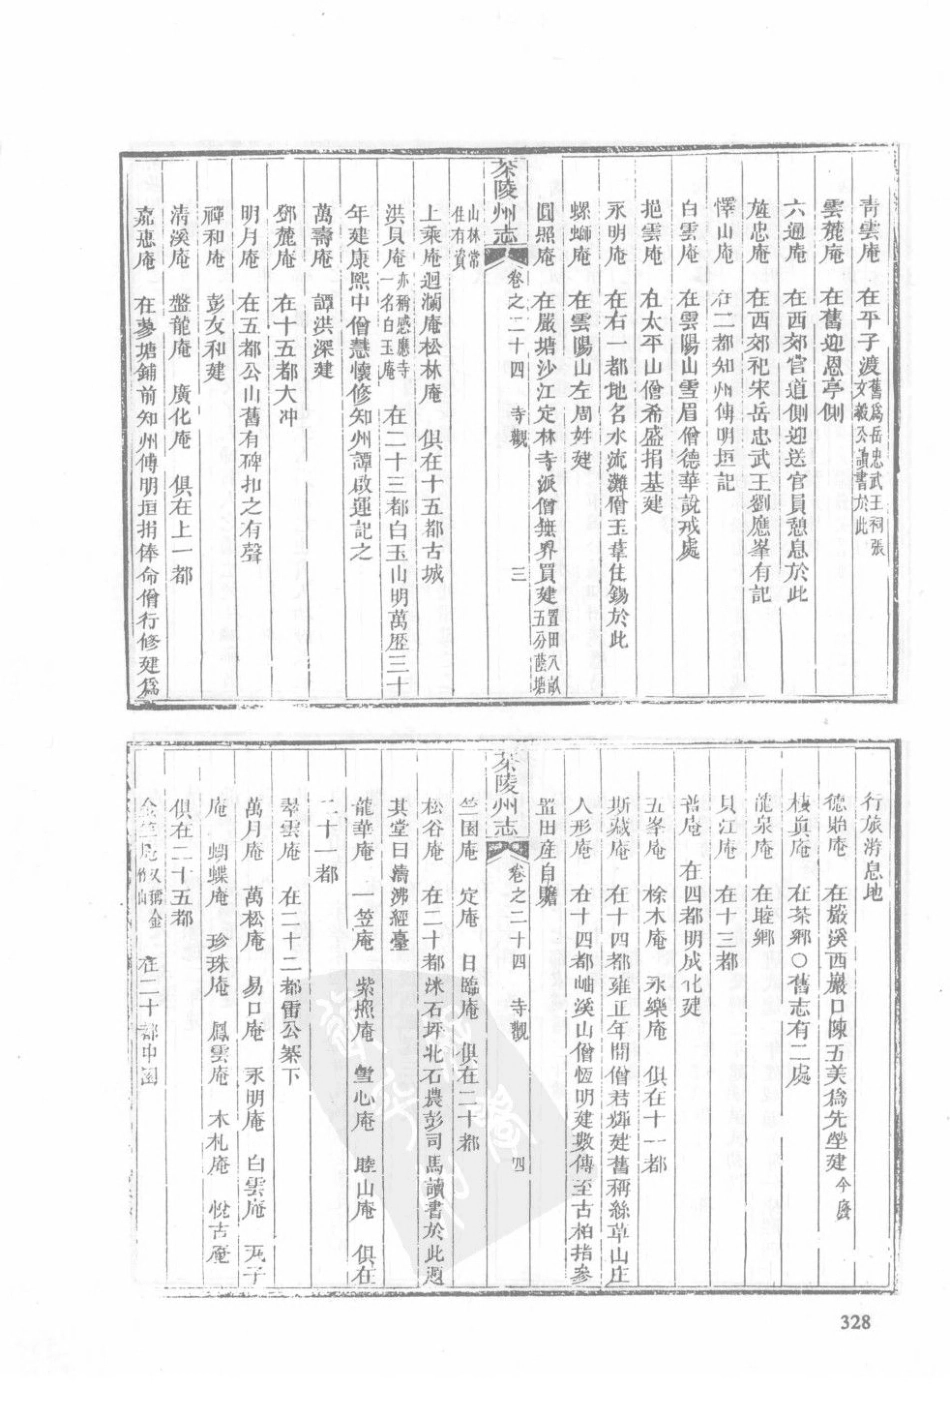 青雲庵　在平子渡舊爲岳忠武王祠張文毅公讀書於此
雲麓庵　在舊迎恩亭側
六通庵　在西郊官道側迎送官員憩息於此
旌忠庵　在西郊祀宋岳忠武王劉應峯有記
懌山庵　在二都知州傅明垣記
白雲庵　在雲陽山雪眉僧德華說戒處
挹雲庵　在太平山僧希盛捐基建
永明庵　在右一都地名水流灘僧玉葦住錫於此
螺螄庵　在雲陽山左周姓建
圓照庵　在嚴塘沙江定林寺派僧無界買建置田八畝五分蔭塘
茶陵州志　卷之二十四　寺觀　三
山林常住有資
上乘庵迴瀾庵松林庵　俱在十五都古城
洪貝庵亦稱感應寺一名白玉庵　在二十三都白玉山明萬歷三十
年建康熙中僧慧懷修知州譚啟運記之
萬壽庵　譚洪深建
鄧麓庵　在十五都大冲
明月庵　在五都公山舊有碑扣之有聲
禪和庵　彭友和建
清溪庵　盤龍庵　廣化庵　俱在上一都
嘉惠庵　在蓼塘鋪前知州傅明垣捐俸命僧行修建爲
行旅游息地
德貽庵　在嚴溪西巖口陳五美爲先塋建今廢
棲眞庵　在茶鄉〇舊志有二處
龍泉庵　在睦鄉
貝江庵　在十三都
普庵　在四都明成化建
五峯庵　梌木庵　永樂庵　俱在十一都
斯藏庵　在十四都雍正年間僧君輝建舊稱絲草山庄
人形庵　在十四都岫溪山僧恆明建數傳至古柏指參
置田産自贍
茶陵州志　卷之二十四　寺觀　四
竺園庵　定庵　日臨庵　俱在二十都
松谷庵　在二十都洣石坪北石農彭司馬讀書於此題
其堂曰清沸經臺
龍華庵　一笠庵　紫照庵　雪心庵　睦山庵　俱在
二十一都
翠雲庵　在二十二都雷公寨下
萬月庵　萬松庵　易口庵　永明庵　白雲庵　瓦子
庵　蝴蝶庵　珍珠庵　鳳雲庵　木札庵　悅古庵
俱在二十五都
又稱金竹山　在二十都中团
328